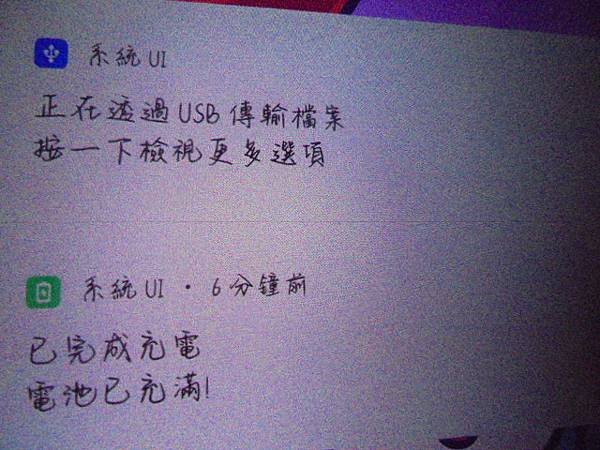 系統 UI
正在透過 USB 傳輸檔案
按一下檢視更多選項
系統 UI • 6 分鐘前
已完成充電
電池已充滿!